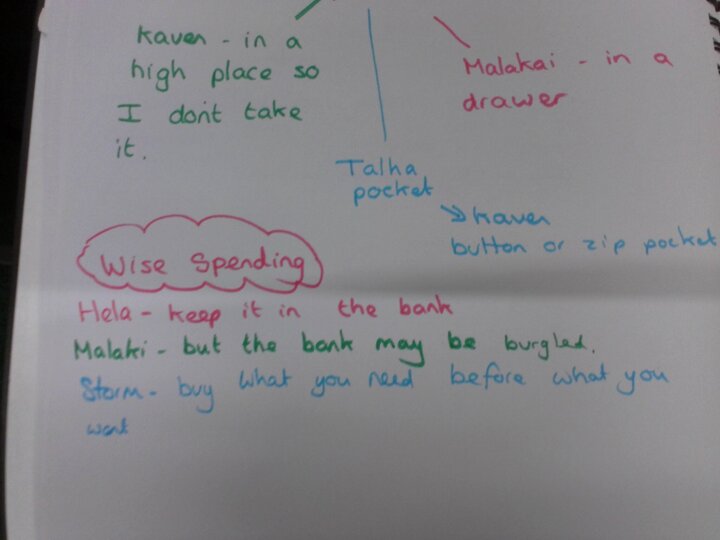 Kaven - in a
high place so
I don't take
it.
Malakai - in a
drawer
Talha
pocket
Kaven
button or zip pocket
Wise Spending
Hela - keep it in the bank
Malaki - but the bank may be burgled.
Storm - buy what you need before what you
want